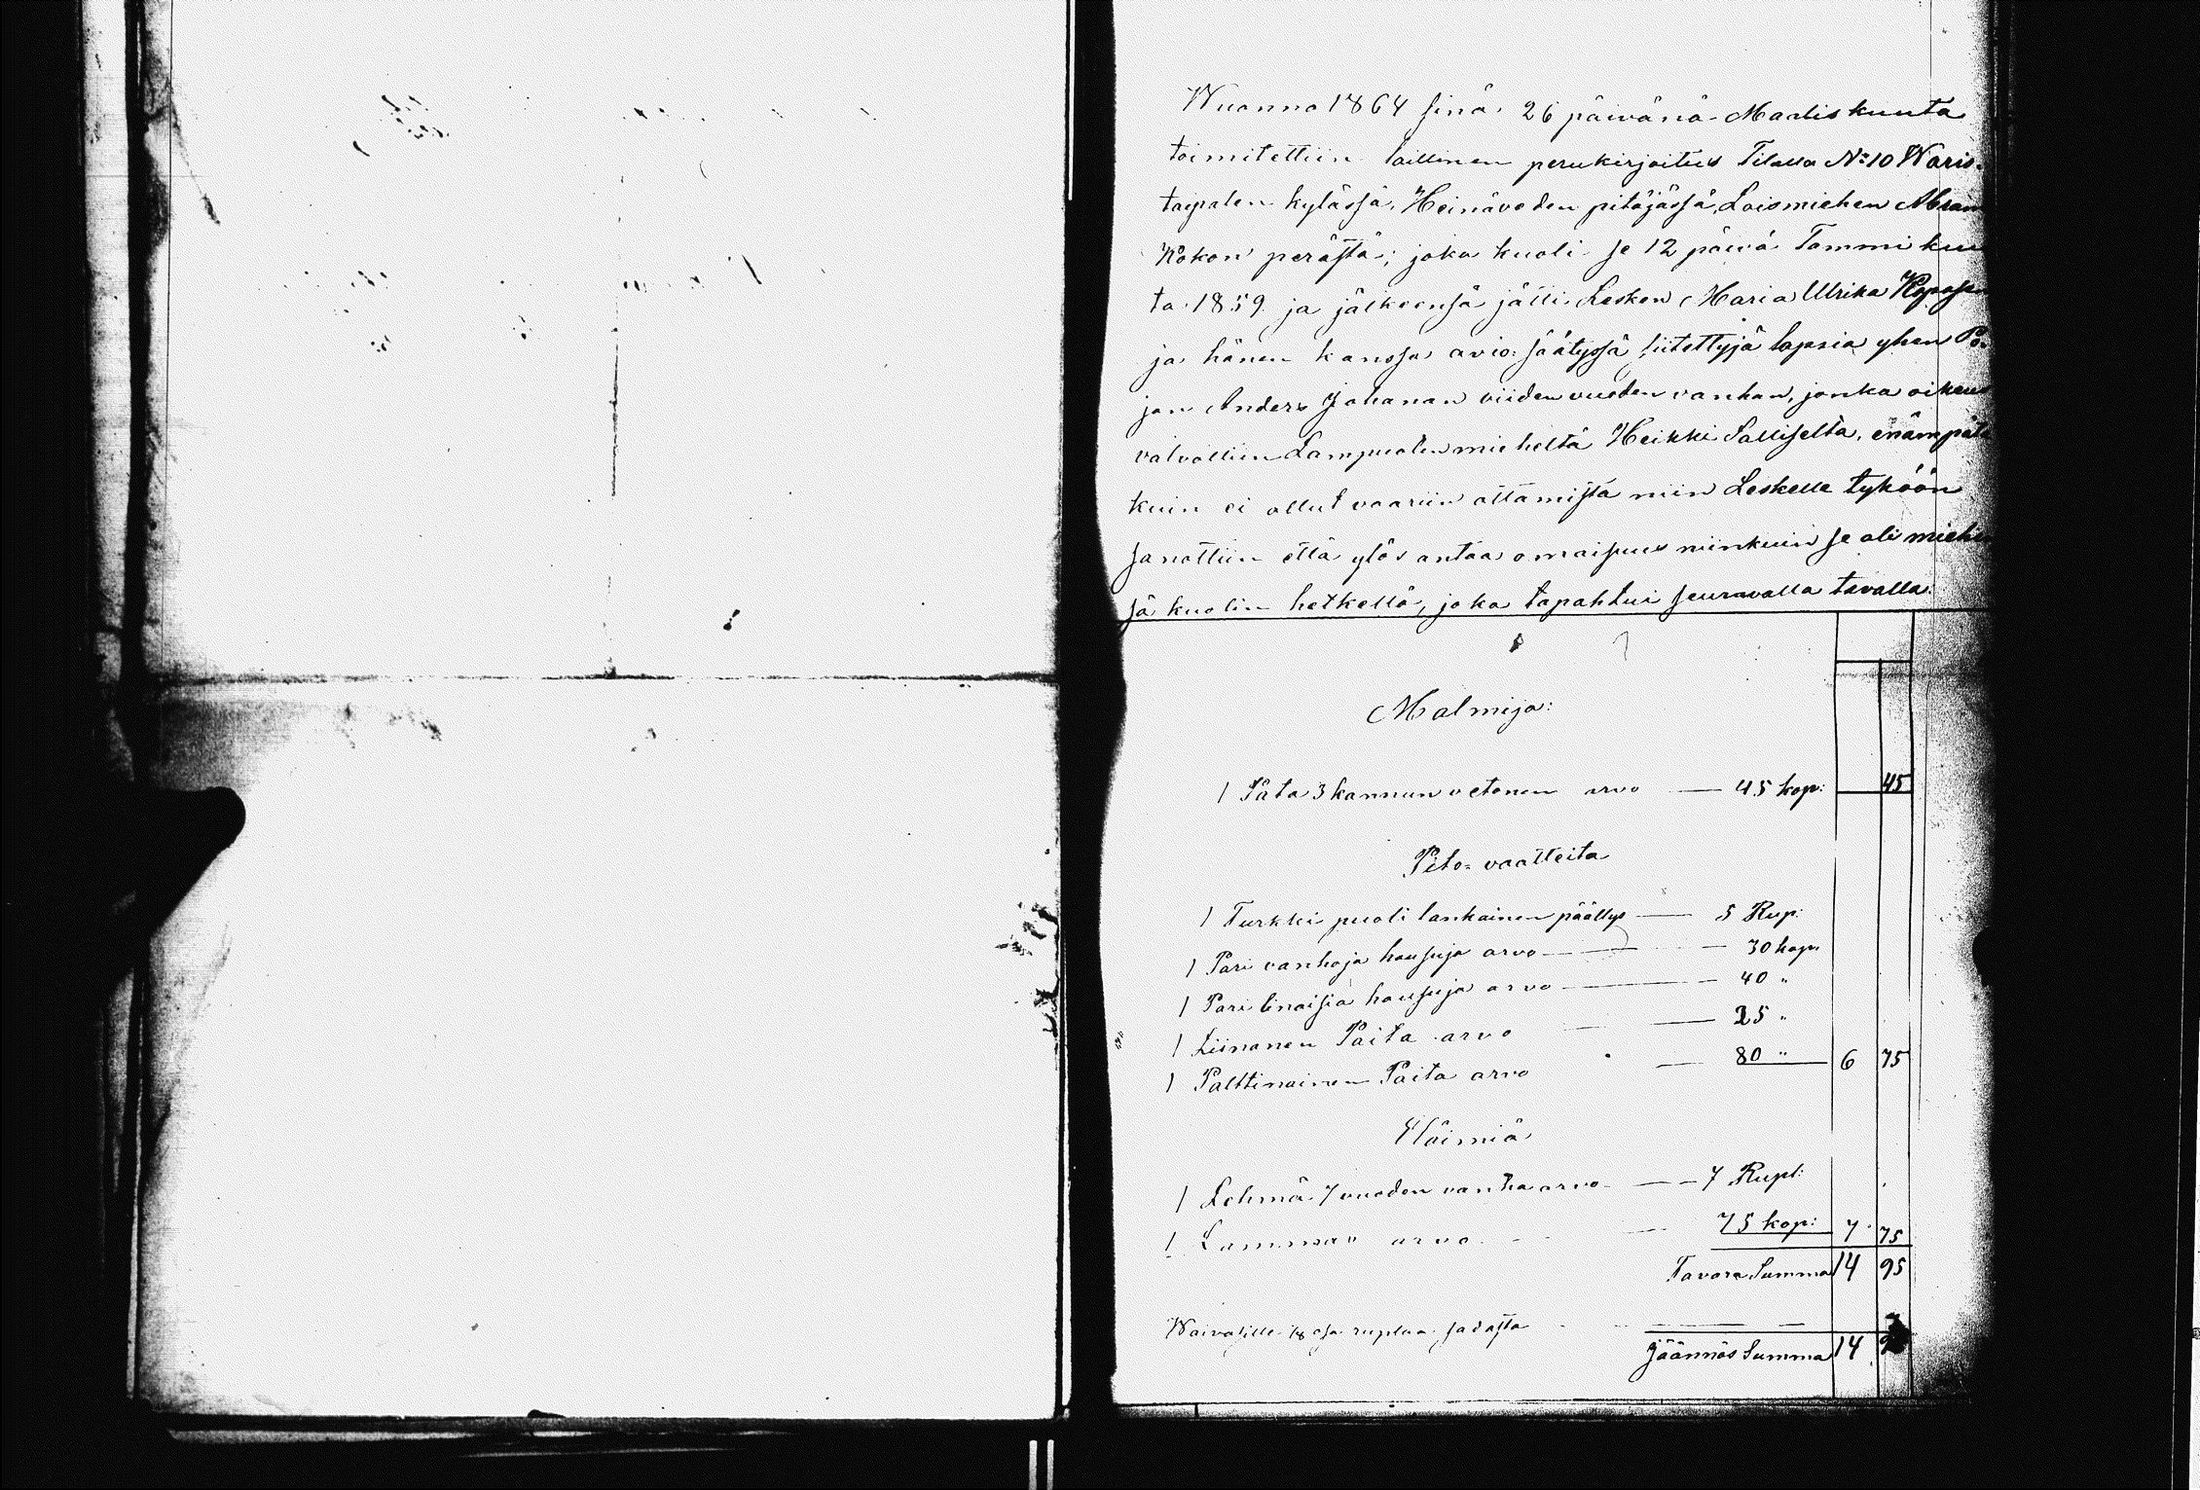 Wuonna 1864 sinä 26 päivänä Maaliskuuta
toimitettiin laillinen perukirjoitus Tilalla No 10 Waris-
taipalen kylässä, Heinäveden pitäjässä, Loismiehen Abram
Kokon perästä; joka kuoli se 12 päivä Tammi kuu
ta 1859 ja jälkeensä jätti Lesken Maria Ulrika Koposen
ja hänen kanssa avio säätyssä siitettyjä lapsia yhen Po
jan Anders Johanan viiden vuoden vanhan, jonka oikeus
valvottiin Lampuotin mieheltä Heikki Salliselta, enämpätä
kuin ei ollut vaariin ottamista niin Leskelle tyköön
sanottiin että ylös antaa omaisuus niinkuin se oli miehe
sä kuolin hetkellä, joka tapahtui seuravalla tavalla:
Malmija:
1 Pata 3 kannun vetonen arvo — 45 kop: 45
Pito- vaatteita
1 Turkki puoli lankainen päällys — 5 Rup:
1 Pari vanhoja housuja arvo — 30 kop
1 Pari linaisia housuja arvo — 40 "
1 Liinanen Paita arvo — 25 "
1 Palttinainen Paita arvo — 80 " 6 75
Elaimiä
1 Lehmä 7 vuoden vanha arvo — 7 Rupl:
1 Lammas arvo — 75 kop: 7 75
Tavara Summa 14 95
Waivasille 1/8 osa ruplaa sadasta
Jäännös Summa 14